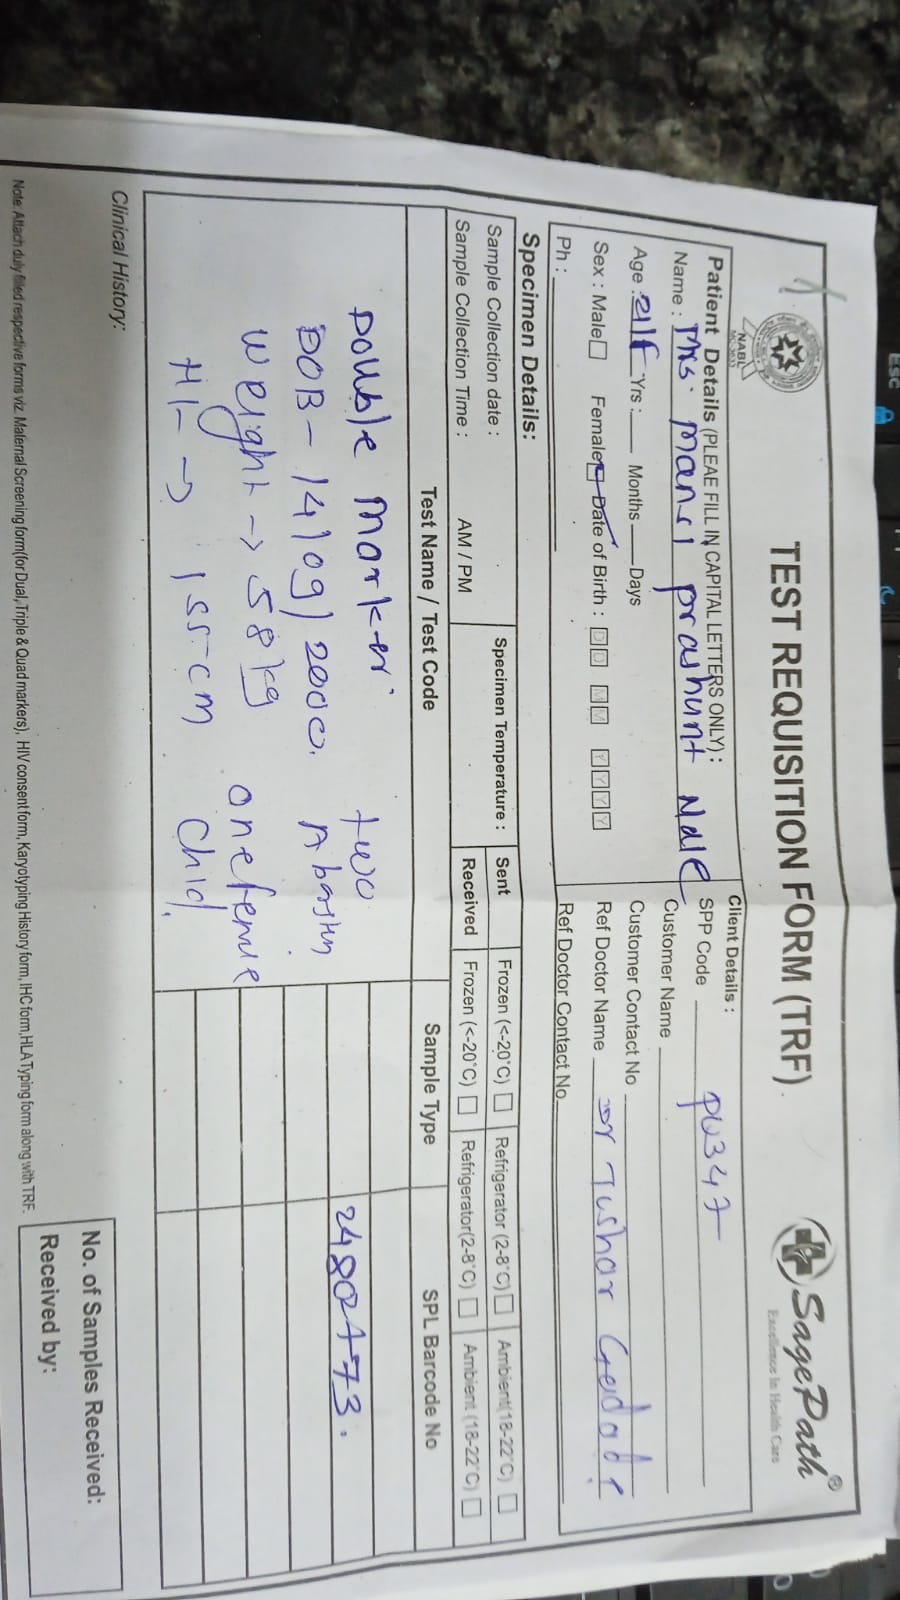 TEST REQUISITION FORM (TRF)
SagePath®
Excellence In Health Care
NABL
Patient Details (PLEAE FILL IN CAPITAL LETTERS ONLY) :
Name : Mrs. Mansi prashunt Nale
Age : 21/F Yrs : Months Days
Sex : Male Female Date of Birth : DD MM YYYY
Ph :
Client Details :
SPP Code PU347
Customer Name
Customer Contact No
Ref Doctor Name Dr Tushar Gadade
Ref Doctor Contact No
Specimen Details:
Sample Collection date :
Sample Collection Time : AM / PM
Specimen Temperature :
Sent Frozen (<-20°C) Refrigerator (2-8°C) Ambient(18-22°C)
Received Frozen (<-20°C) Refrigerator(2-8°C) Ambient (18-22°C)
Test Name / Test Code Sample Type SPL Barcode No
Double Marker.
DOB - 14/09/2000.
Weight -> 58kg
Ht -> 155-cm
two
Abortin
one female
Child.
Clinical History:
No. of Samples Received:
Received by:
Note: Attach duly filled respective forms viz. Maternal Screening form(for Dual, Triple & Quad markers), HIV consent form, Karyotyping History form, IHC form, HLA Typing form along with TRF.
Esc